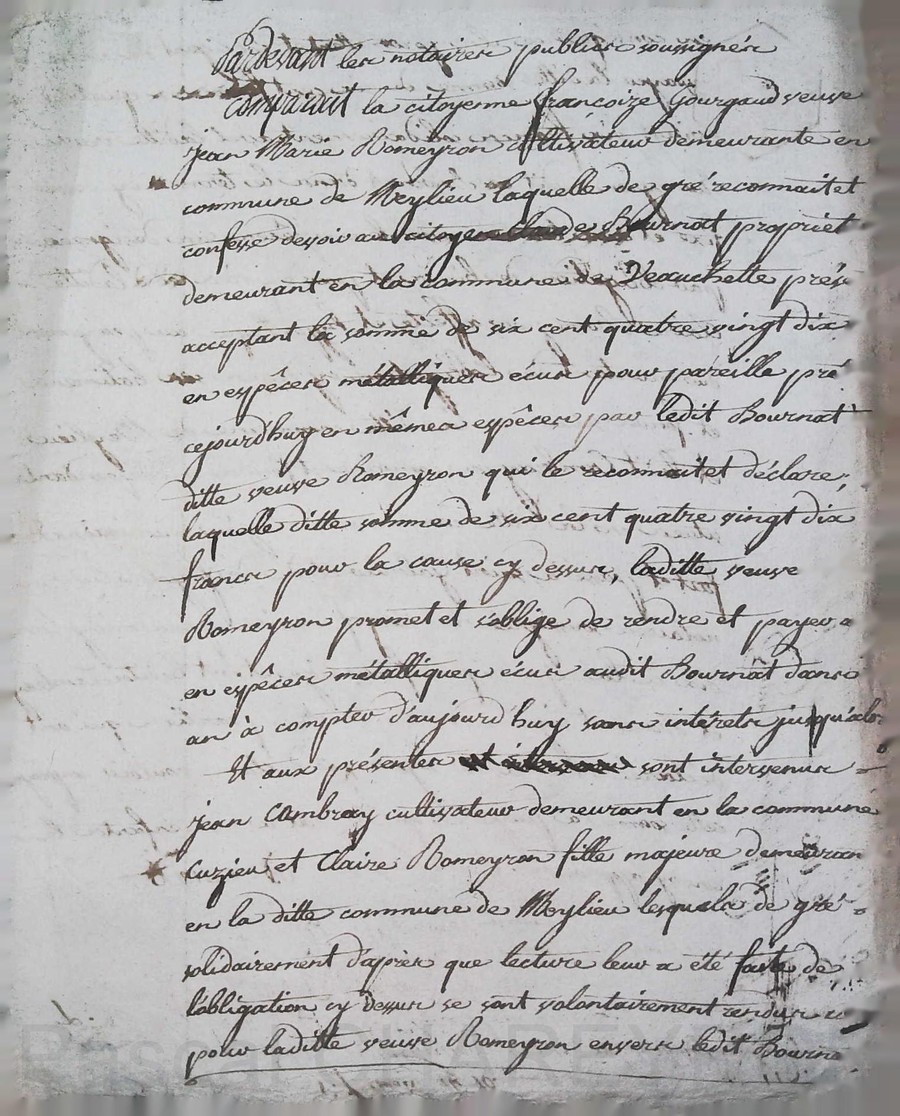 Pardevant les notaires publics soussignés
Comparait la citoyenne francoize Gourgaud veuve
jean Marie Romeyron cultivateur demeurante en
commune de Meylieu laquelle de gré reconnait et
confesse devoir au citoyen Bournat propriet
demeurant en la commune de Veauchette prés
acceptant la somme de six cent quatre vingt dix
en espêces métalliques écus pour pareille pré
cejourd'huy en mêmes espêces par ledit Bournat
ditte veuve Romeyron qui le reconnait et déclare,
laquelle ditte somme de six cent quatre vingt dix
francs pour la cause cy dessus, laditte veuve
Romeyron promet et s'oblige de rendre et payer a
en espêces métalliques écus audit Bournat dans
an à compter d'aujourd'huy sans intérets jusqu'alor
Et aux présentes sont intervenus
jean Combray cultivateur demeurant en la commune
Cuzieu et Claire Romeyron fille majeure demeuran
en la ditte commune de Meylieu lesquels de gré
solidairement d'après que lecture leur a été faite de
l'obligation cy dessus se sont volontairement rendus
pour laditte veuve Romeyron envers ledit Bourna